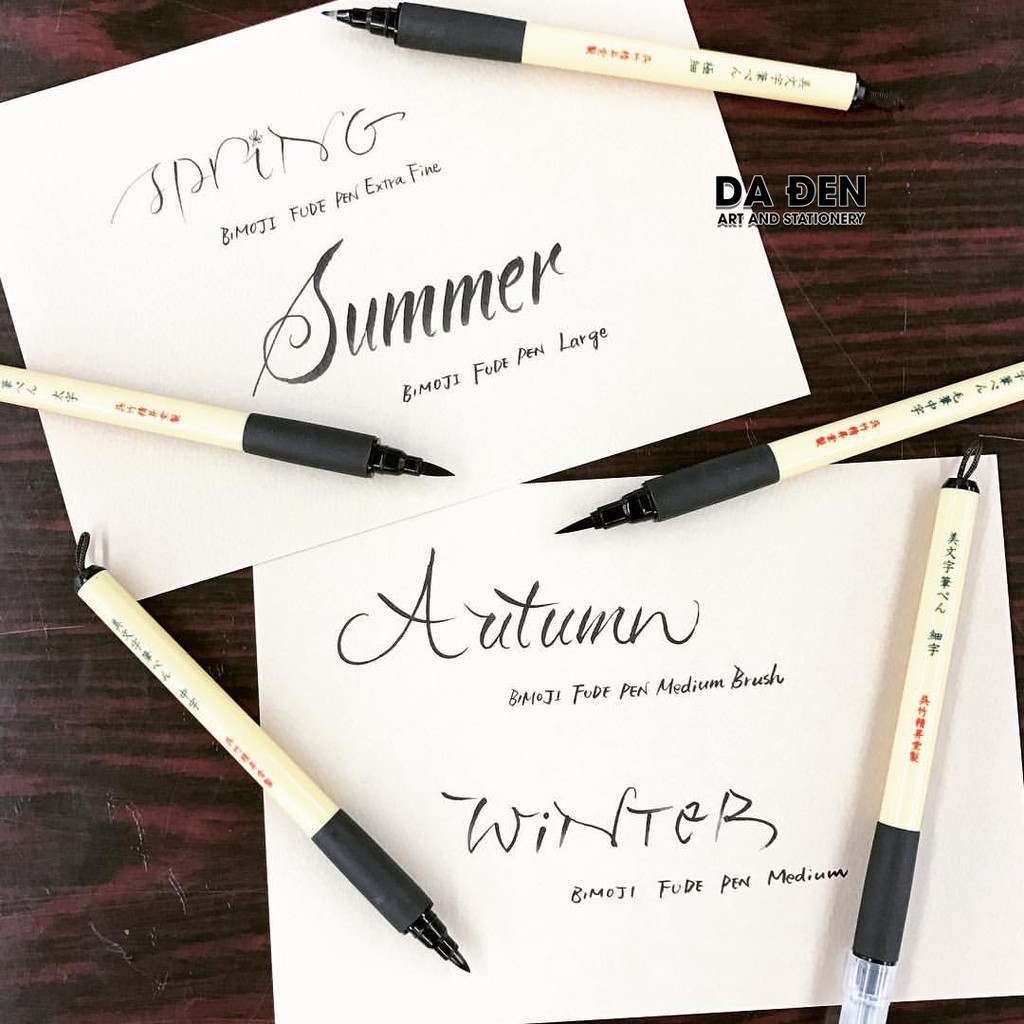 美文字筆ぺん 極細
呉竹精昇堂製
SPRiNG
BiMOJI FUDE PEN Extra Fine
DA ĐEN
ART AND STATIONERY
Summer
BiMOJI FUDE PEN Large
筆ぺん 太字
呉竹精昇堂製
字筆ぺん 毛筆中字
呉竹精昇堂製
Autumn
BiMOJI FUDE PEN Medium Brush
美文字筆ぺん 中字
呉竹精昇堂製
美文字筆ぺん 細字
呉竹精昇堂製
WiNTeR
BiMOJI FUDE PEN Medium